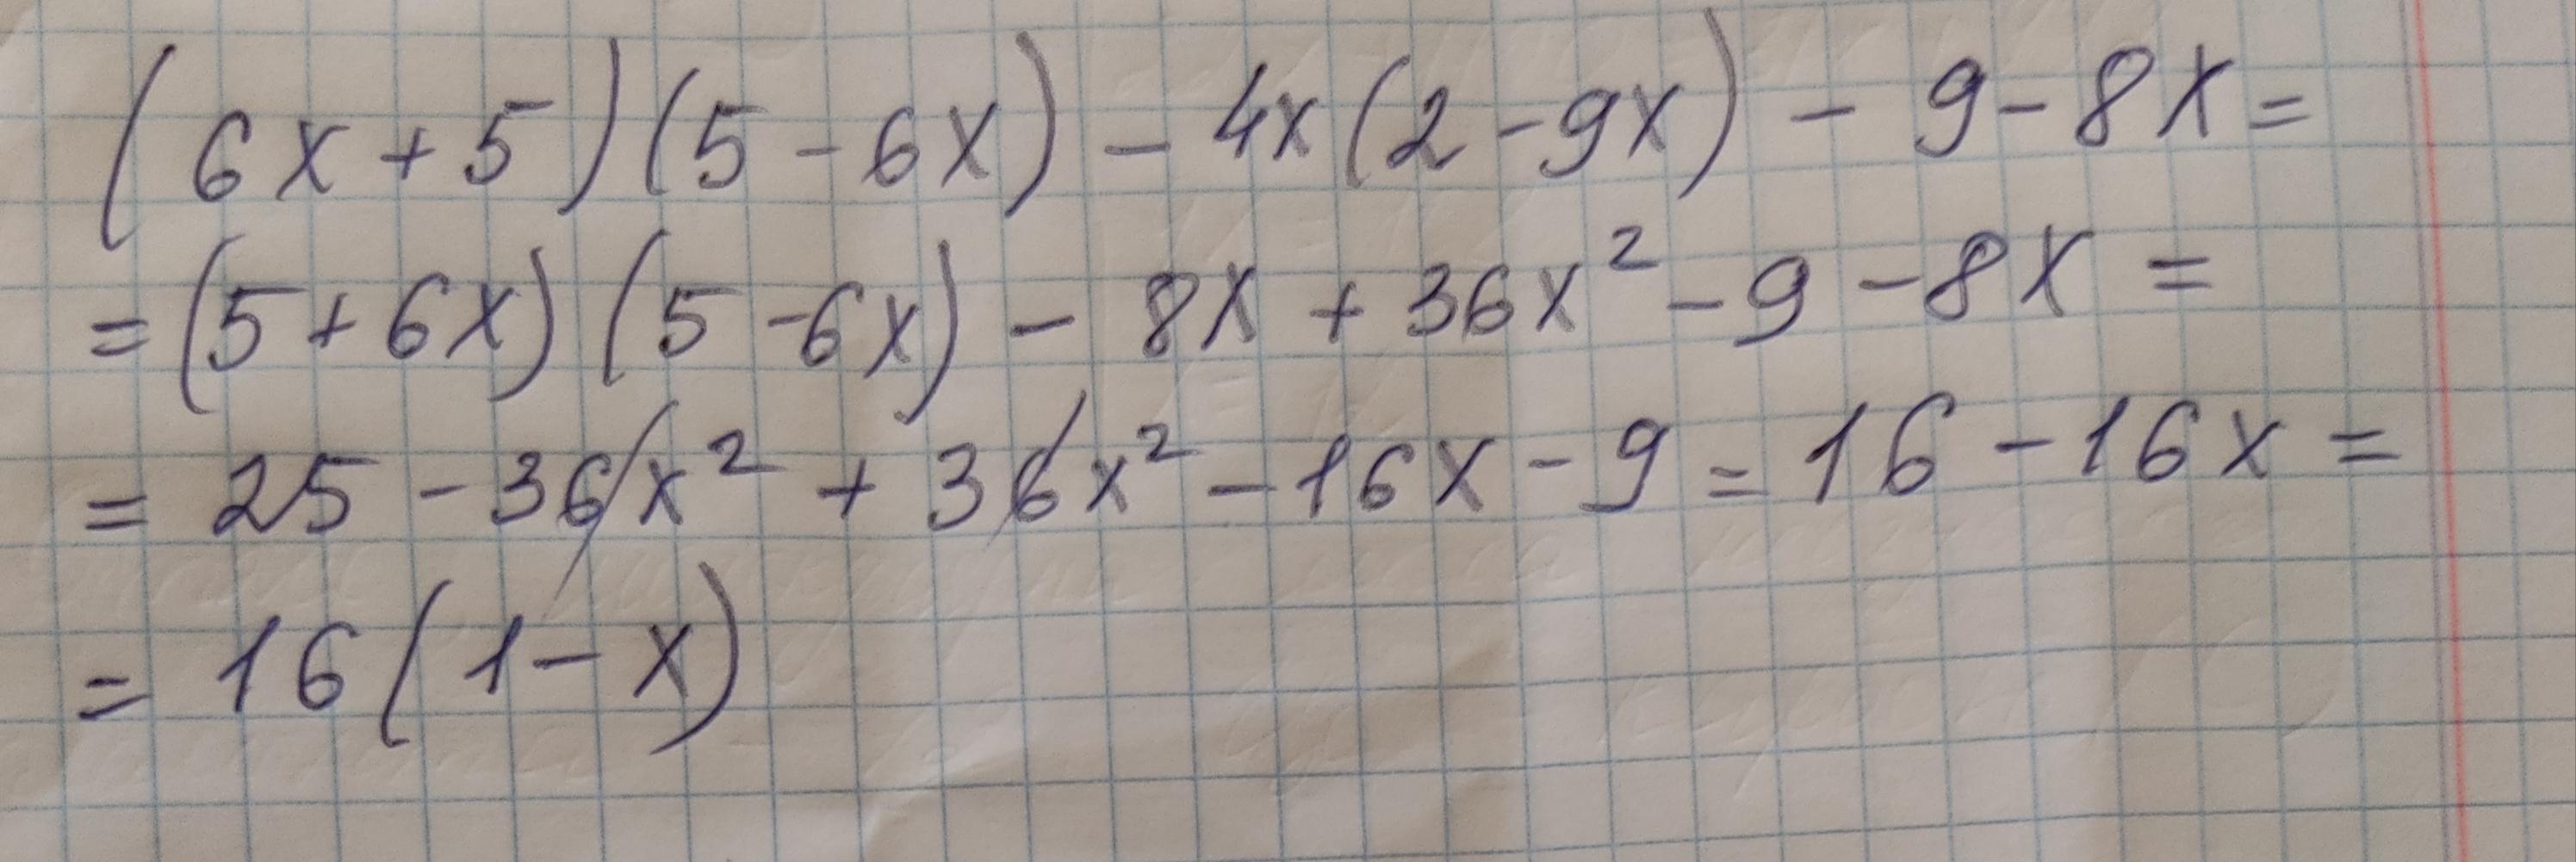 (6x+5)(5-6x)-4x(2-9x)-9-8x=
=(5+6x)(5-6x)-8x+36x²-9-8x=
=25-36x²+36x²-16x-9=16-16x=
=16(1-x)